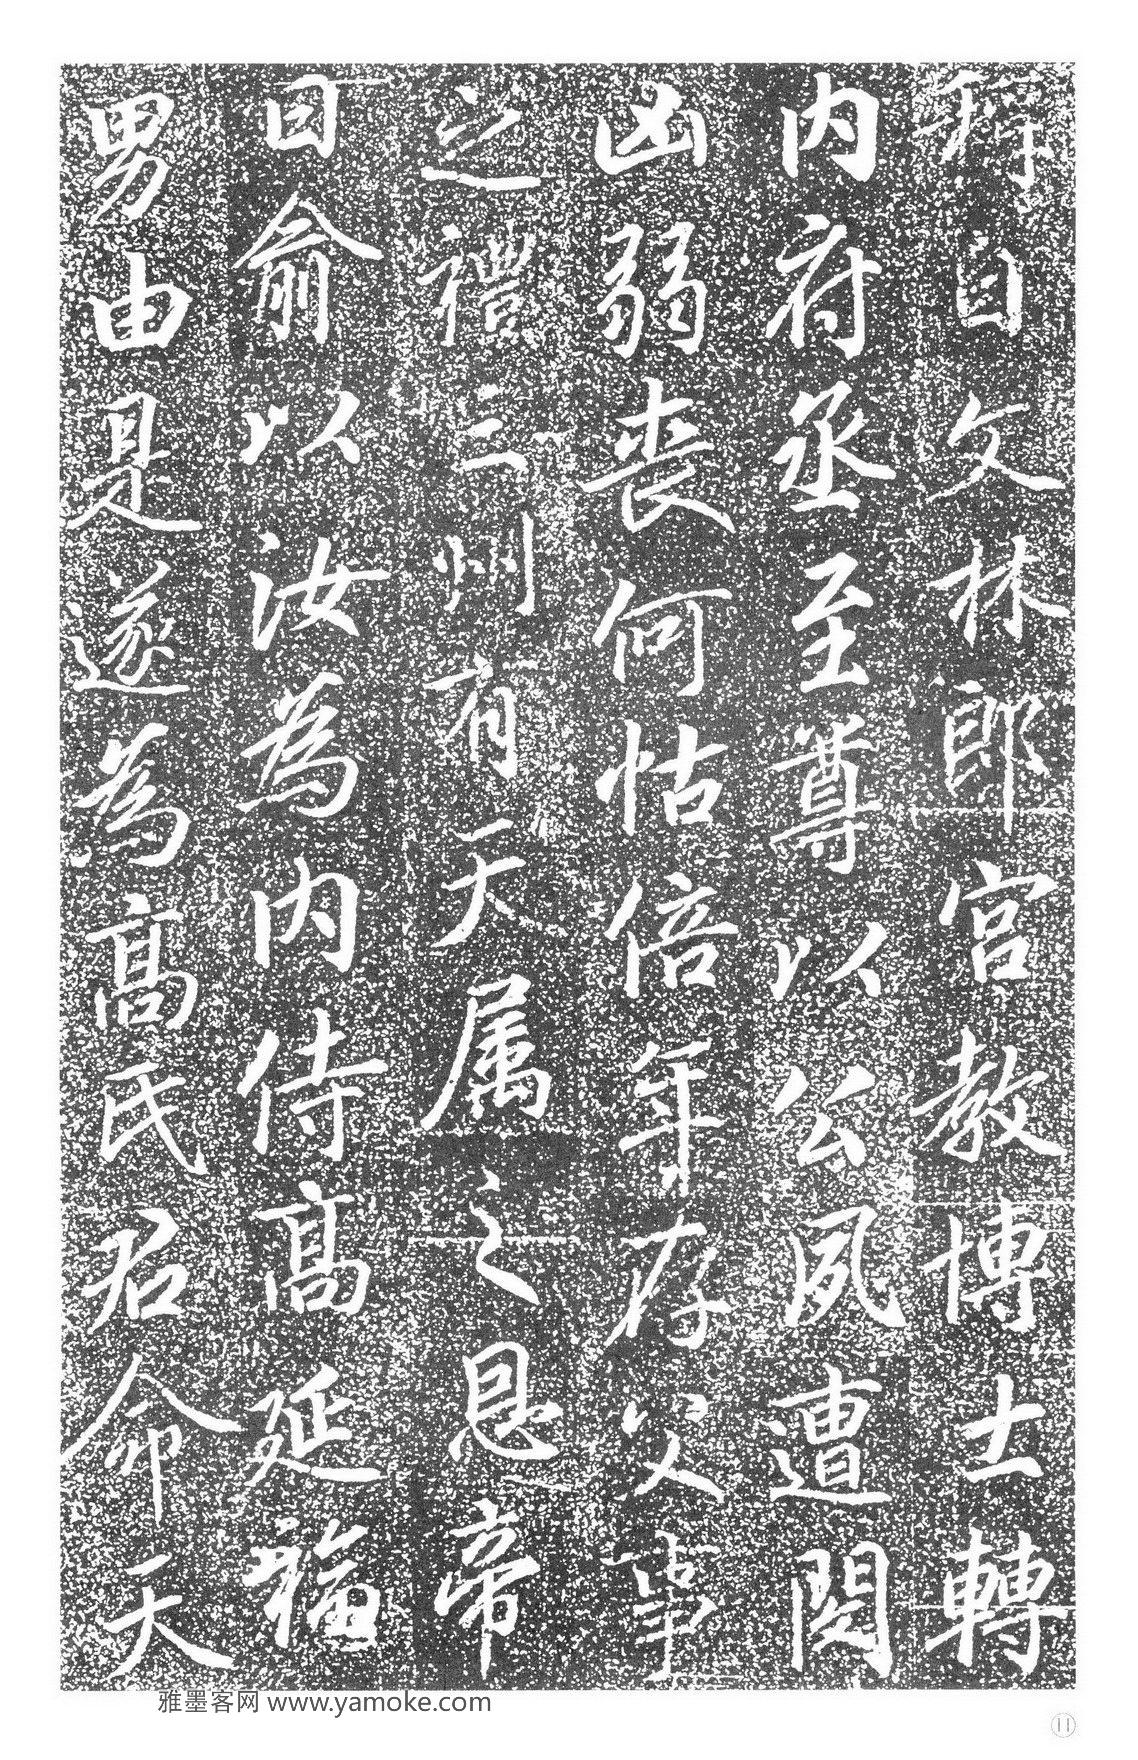 稱自文林郎宮教博士轉
内府丞至尊以公夙遭閔
凶弱喪何怙倍年存父事
之禮三州有天属之恩帝
曰俞以汝為内侍高延福
男由是遂為高氏君命天
雅墨客网 www.yamoke.com
11